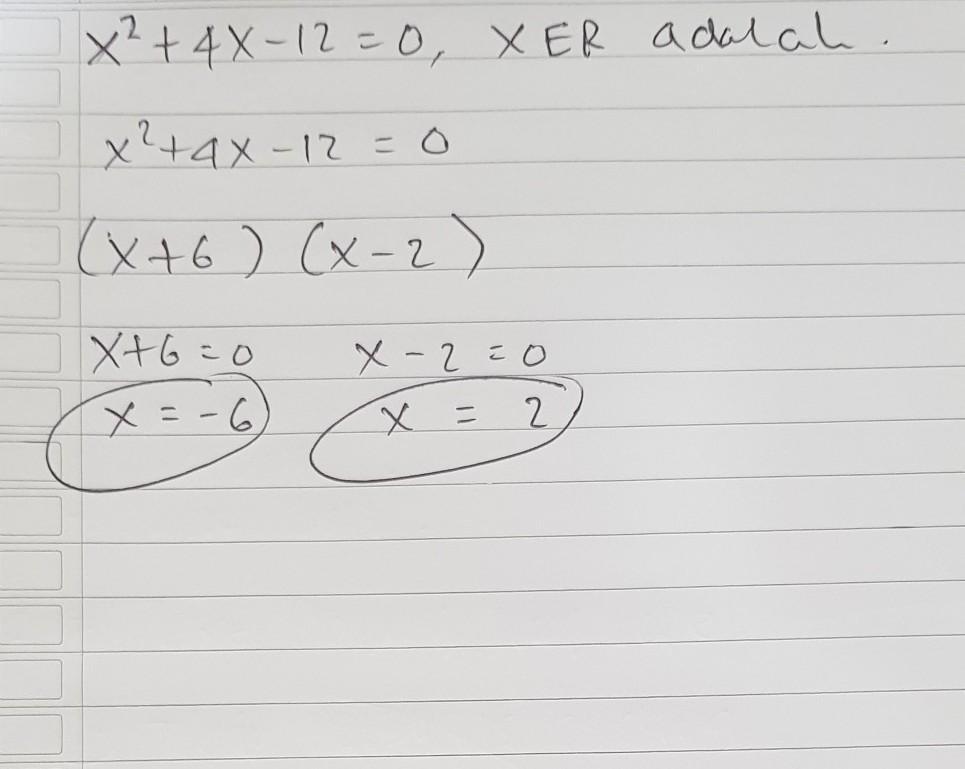 x²+4x-12=0, XER adalah.
x²+4x-12=0
(x+6) (x-2)
x+6=0 x-2=0
x=-6 x=2